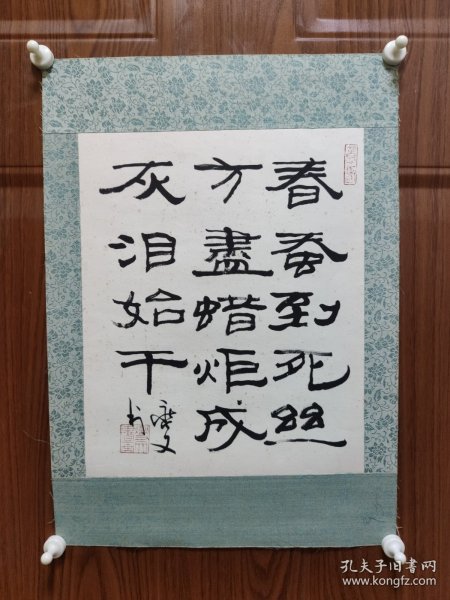 春蚕到死丝
方盡蜡炬成
灰泪始干
孔夫子旧书网
www.kongfz.com